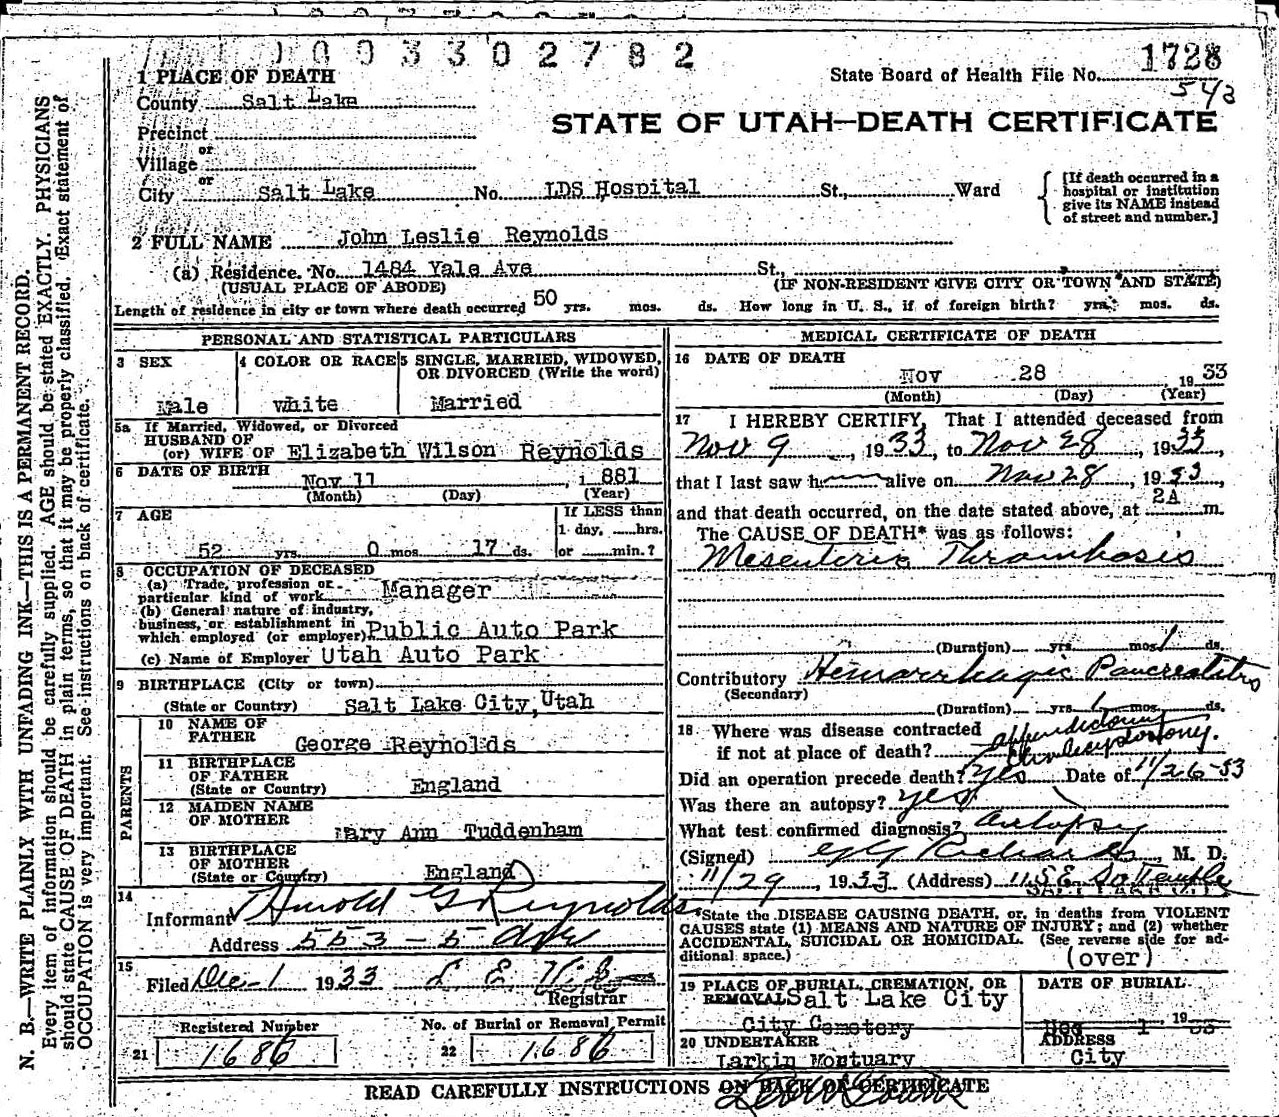 0 0 3 3 0 2 7 8 2
1728
1 PLACE OF DEATH
State Board of Health File No.
County Salt Lake
542
Precinct
STATE OF UTAH—DEATH CERTIFICATE
or
Village
or
City Salt Lake No. LDS Hospital St., Ward
[If death occurred in a
hospital or institution
give its NAME instead
of street and number.]
2 FULL NAME John Leslie Reynolds
(a) Residence. No. 1484 Yale Ave St.,
(USUAL PLACE OF ABODE) (IF NON-RESIDENT GIVE CITY OR TOWN AND STATE)
Length of residence in city or town where death occurred 50 yrs. mos. ds. How long in U. S., if of foreign birth? yrs. mos. ds.
PERSONAL AND STATISTICAL PARTICULARS
3 SEX
4 COLOR OR RACE
5 SINGLE, MARRIED, WIDOWED,
OR DIVORCED (Write the word)
Male White Married
5a If Married, Widowed, or Divorced
HUSBAND OF
(or) WIFE OF Elizabeth Wilson Reynolds
6 DATE OF BIRTH
Nov 11, 1881
(Month) (Day) (Year)
7 AGE
If LESS than
1 day, hrs.
52 yrs. 0 mos. 17 ds. or min.?
8 OCCUPATION OF DECEASED
(a) Trade, profession or
particular kind of work Manager
(b) General nature of industry,
business, or establishment in
which employed (or employer) Public Auto Park
(c) Name of Employer Utah Auto Park
9 BIRTHPLACE (City or town)
(State or Country) Salt Lake City, Utah
PARENTS
10 NAME OF
FATHER George Reynolds
11 BIRTHPLACE
OF FATHER
(State or Country) England
12 MAIDEN NAME
OF MOTHER Mary Ann Tuddenham
13 BIRTHPLACE
OF MOTHER
(State or Country) England
14
Informant Harold G Reynolds
Address 553 - 5 Ave
15
Filed Dec 1 1933 L. E.
Registrar
Registered Number
21 1686
No. of Burial or Removal Permit
22 1686
MEDICAL CERTIFICATE OF DEATH
16 DATE OF DEATH
Nov 28 1933
(Month) (Day) (Year)
17 I HEREBY CERTIFY, That I attended deceased from
Nov 9, 1933, to Nov 28, 1933,
that I last saw h alive on Nov 28, 1933,
and that death occurred, on the date stated above, at 2A m.
The CAUSE OF DEATH* was as follows:
Mesenteric Thrombosis
(Duration) yrs. mos. 1 ds.
Contributory Hemorrhagic Pancreatitis
(Secondary)
(Duration) yrs. 1 mos. ds.
18 Where was disease contracted
if not at place of death?
appendectomy
cholecystostomy.
Did an operation precede death? Yes Date of 11/26-33
Was there an autopsy? yes
What test confirmed diagnosis? Autopsy
(Signed) G G Richards, M. D.
11/29, 1933 (Address) 115 E So Temple
SALT LAKE CITY
*State the DISEASE CAUSING DEATH, or, in deaths from VIOLENT
CAUSES state (1) MEANS AND NATURE OF INJURY; and (2) whether
ACCIDENTAL, SUICIDAL OR HOMICIDAL. (See reverse side for ad-
ditional space.)
(over)
19 PLACE OF BURIAL, CREMATION, OR
REMOVAL Salt Lake City
City Cemetery
DATE OF BURIAL
Dec 1 1933
20 UNDERTAKER
Larkin Mortuary
ADDRESS
City
READ CAREFULLY INSTRUCTIONS ON BACK OF CERTIFICATE
N. B.—WRITE PLAINLY WITH UNFADING INK—THIS IS A PERMANENT RECORD.
Every item of information should be carefully supplied. AGE should be stated EXACTLY. PHYSICIANS
should state CAUSE OF DEATH in plain terms, so that it may be properly classified. Exact statement of
OCCUPATION is very important. See instructions on back of certificate.